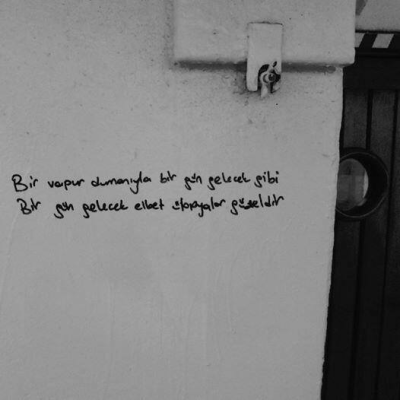 Bir vapur dumanıyla bir gün gelecek gibi
Bir gün gelecek elbet ütopyalar güzeldir